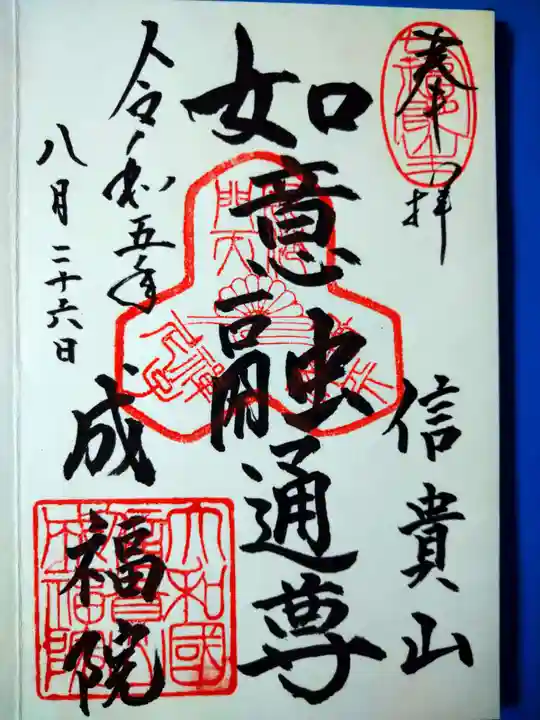 奉拝
信貴山
如意融通尊
令和五年
八月二十六日
成福院
大和國